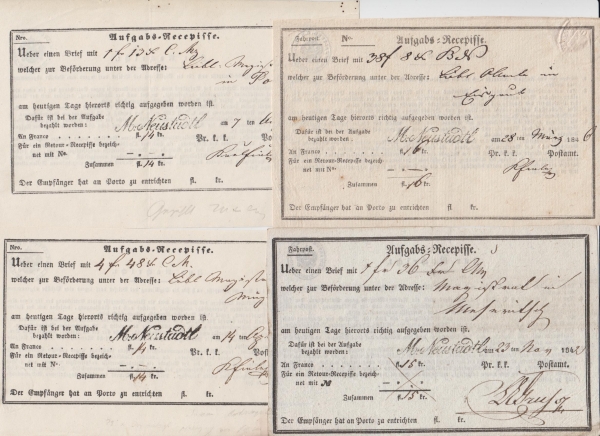 Nro.
Aufgabs-Recepisse.
Ueber einen Brief mit 1 f 13 x C. M.
welcher zur Beförderung unter der Adresse: Löbl. Magist
in
am heutigen Tage hierorts richtig aufgegeben worden ist.
Dafür ist bei der Aufgabe
bezahlt worden: M: Neustadtl am 7 ten
An Franco fl. 14 kr. Pr. k. k. Post
Für ein Retour-Recepisse bezeich-
net mit No.
Zusammen fl. 14 kr.
Der Empfänger hat an Porto zu entrichten fl. kr.
Fahrpost. No.
Aufgabs-Recepisse.
Ueber einen Brief mit 38 f 8 x B N
welcher zur Beförderung unter der Adresse: Löbl. in
am heutigen Tage hierorts richtig aufgegeben worden ist.
Dafür ist bei der Aufgabe
bezahlt worden: M: Neustadtl am 28 ten März 184
An Franco fl. 6 kr. Pr. k. k. Postamt.
Für ein Retour-Recepisse bezeich-
net mit No.
Zusammen fl. 6 kr.
Der Empfänger hat an Porto zu entrichten fl. kr.
Nro.
Aufgabs-Recepisse.
Ueber einen Brief mit 4 f 48 x C. M.
welcher zur Beförderung unter der Adresse: Löbl Magistra
am heutigen Tage hierorts richtig aufgegeben worden ist.
Dafür ist bei der Aufgabe
bezahlt worden: M: Neustadtl am 14 ten
An Franco fl. 14 kr. Pr. k. k. Post
Für ein Retour-Recepisse bezeich-
net mit No.
Zusammen fl. 14 kr.
Der Empfänger hat an Porto zu entrichten fl. kr.
Fahrpost.
Aufgabs-Recepisse.
Ueber einen Brief mit 1 f 36 x C M
welcher zur Beförderung unter der Adresse:
Magistrat in
am heutigen Tage hierorts richtig aufgegeben worden ist.
Dafür ist bei der Aufgabe
bezahlt worden: M: Neustadtl am 23 ten Nov 184
An Franco fl. 15 kr. Pr. k. k. Postamt.
Für ein Retour-Recepisse bezeich-
net mit No
Zusammen fl. 15 kr.
Der Empfänger hat an Porto zu entrichten fl. kr.